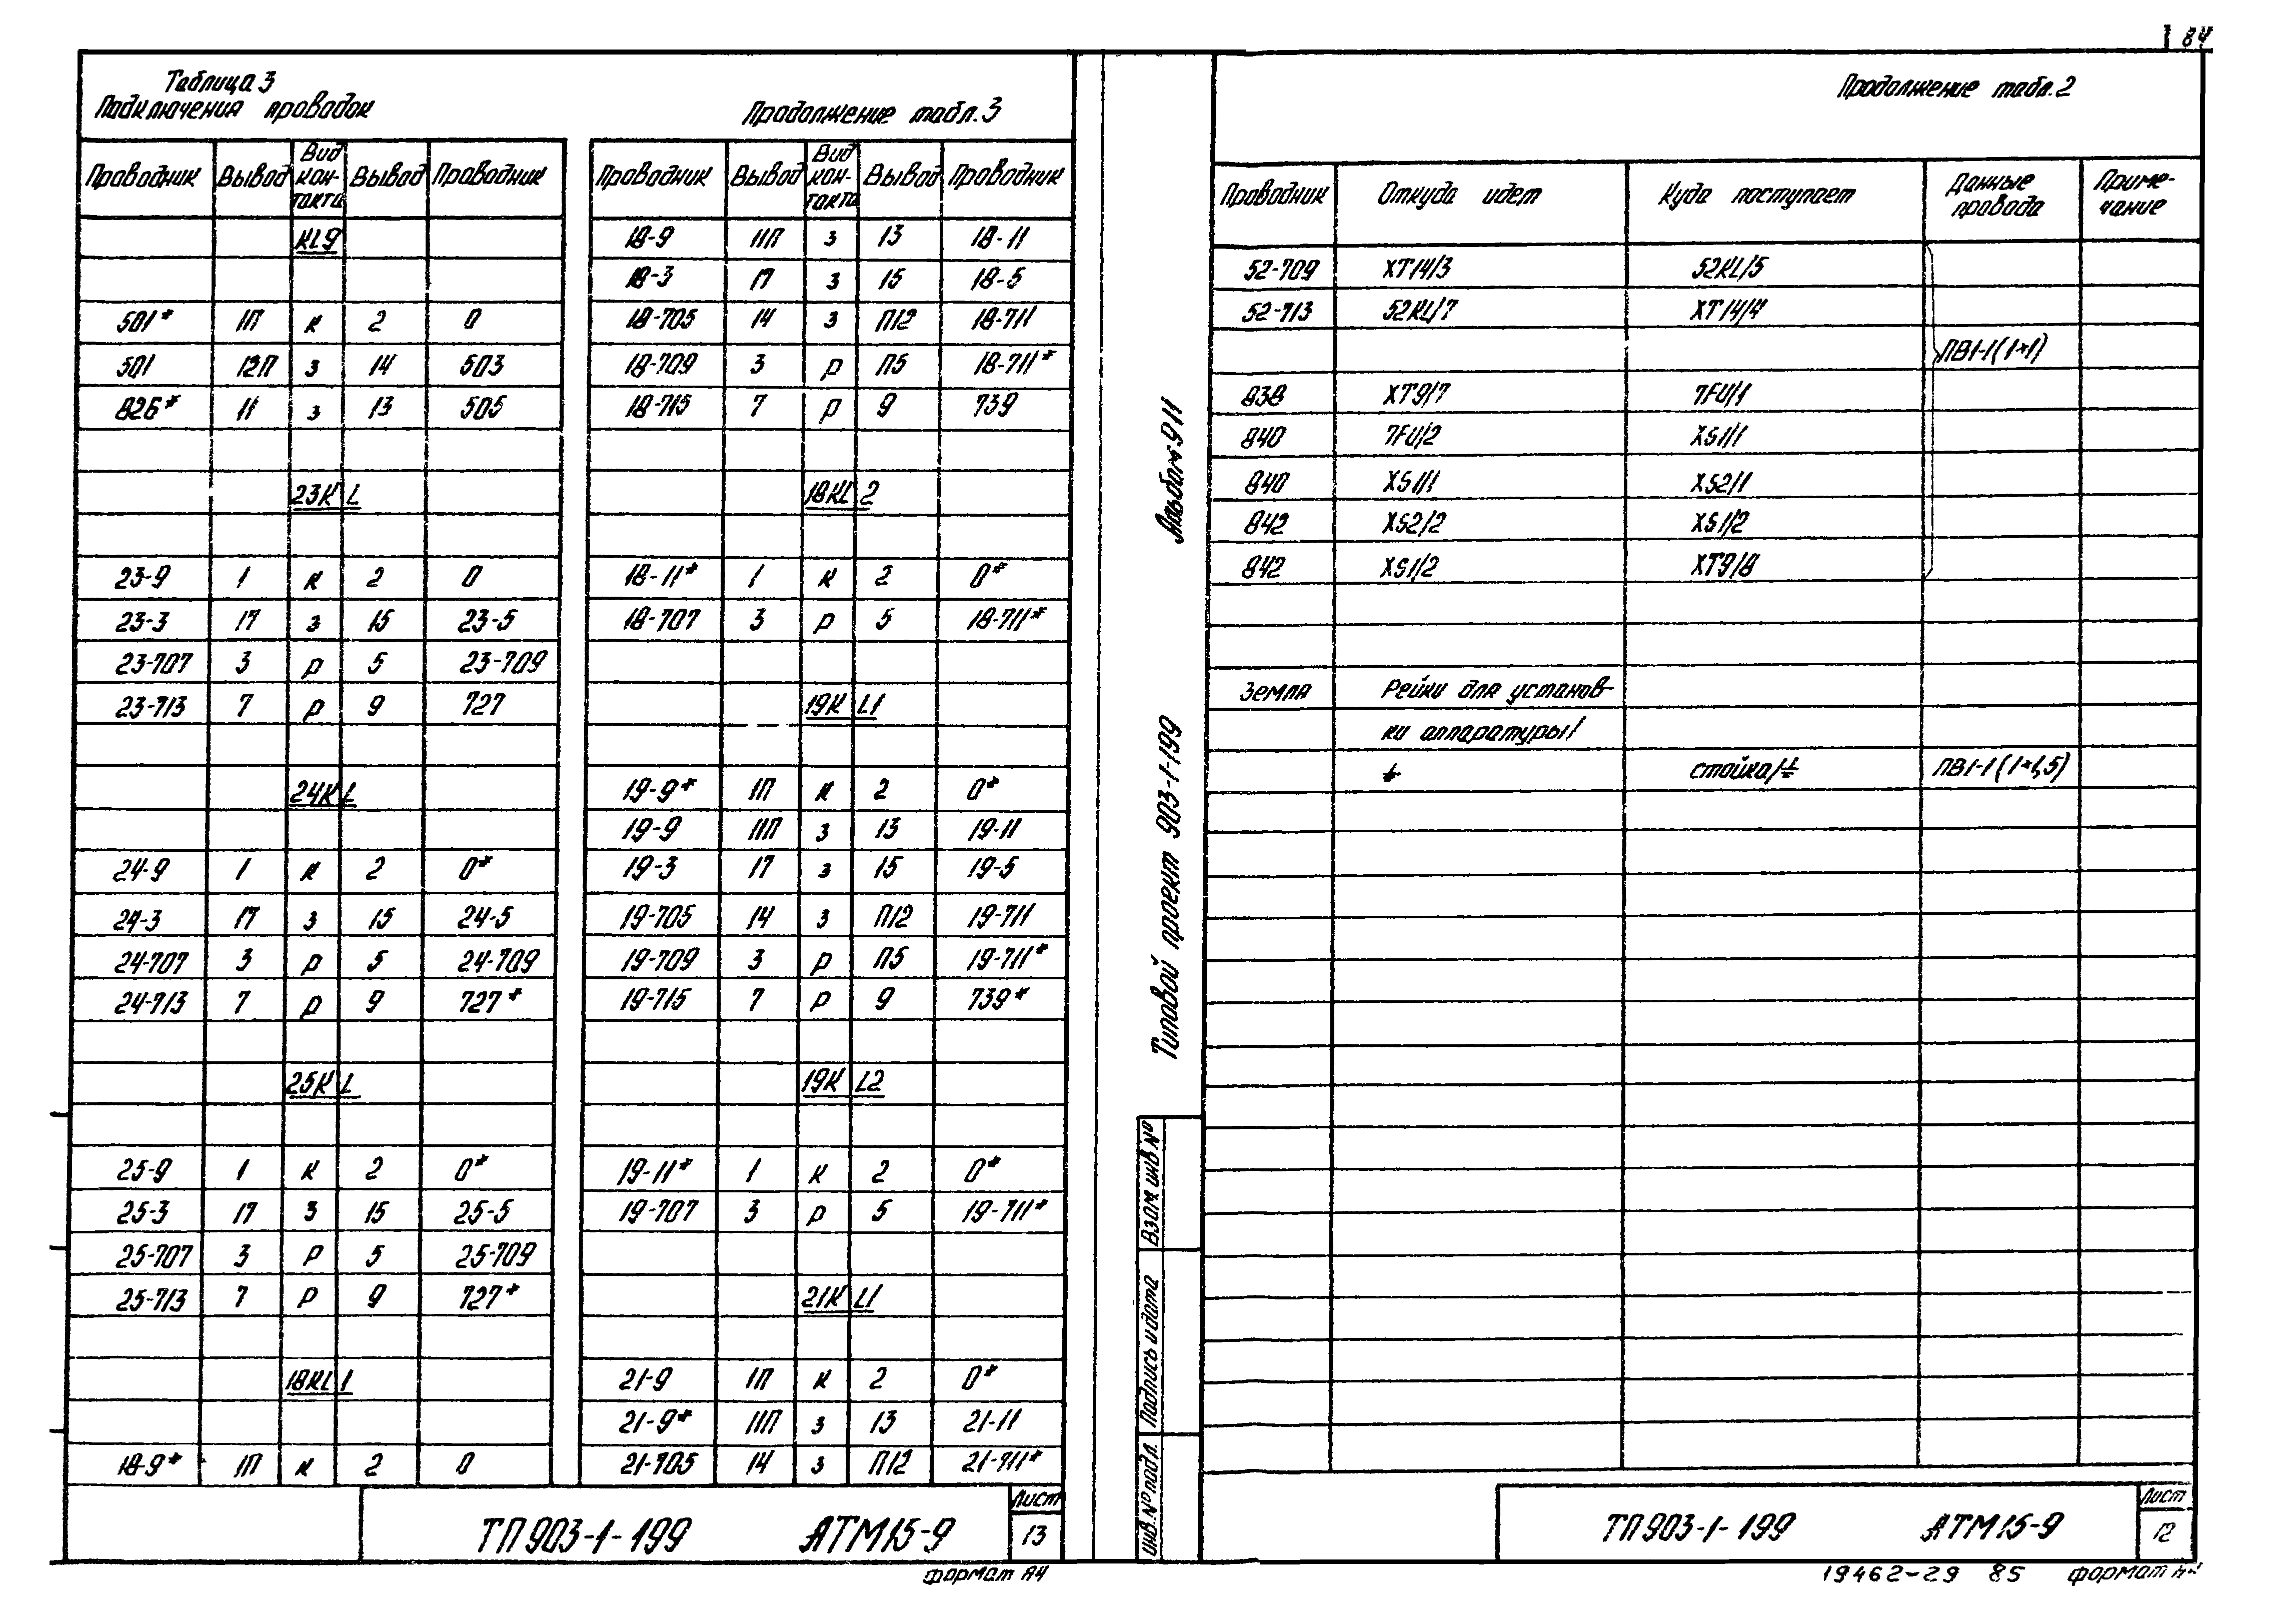 84
Таблица 3
Подключения проводок
Проводник Вывод Вид кон-такта Вывод Проводник
KL9
501* 1П к 2 0
501 12П з 14 503
826* 11 з 13 505
23KL
23-9 1 к 2 0
23-3 17 з 15 23-5
23-707 3 р 5 23-709
23-713 7 р 9 727
24KL
24-9 1 к 2 0*
24-3 17 з 15 24-5
24-707 3 р 5 24-709
24-713 7 р 9 727*
25KL
25-9 1 к 2 0*
25-3 17 з 15 25-5
25-707 3 р 5 25-709
25-713 7 р 9 727*
18KL1
18-9* 1П к 2 0
Продолжение табл.3
Проводник Вывод Вид кон-такта Вывод Проводник
18-9 11П з 13 18-11
18-3 17 з 15 18-5
18-705 14 з П12 18-711
18-709 3 р П5 18-711*
18-715 7 р 9 739
18KL2
18-11* 1 к 2 0*
18-707 3 р 5 18-711*
19KL1
19-9* 1П к 2 0*
19-9 11П з 13 19-11
19-3 17 з 15 19-5
19-705 14 з П12 19-711
19-709 3 р П5 19-711*
19-715 7 р 9 739*
19KL2
19-11* 1 к 2 0*
19-707 3 р 5 19-711*
21KL1
21-9 1П к 2 0*
21-9* 11П з 13 21-11
21-705 14 з П12 21-711*
ТП 903-1-199 АТМ15-9
Лист
13
формат А4
Альбом 9.11
Типовой проект 903-1-199
Взам. инв. №
Подпись и дата
Инв. № подл.
Продолжение табл.2
Проводник Откуда идет Куда поступает Данные провода Приме-чание
52-709 XT14/3 52KL/5
52-713 52KL/7 XT14/4
ПВ1-1(1×1)
838 XT9/7 7FU/1
840 7FU/2 XS1/1
840 XS1/1 XS2/1
842 XS2/2 XS1/2
842 XS1/2 XT9/8
Земля Рейки для установ-
ки аппаратуры/
⏚ стойка/⏚ ПВ1-1(1×1,5)
ТП 903-1-199 АТМ15-9
Лист
12
19462-29 85 формат